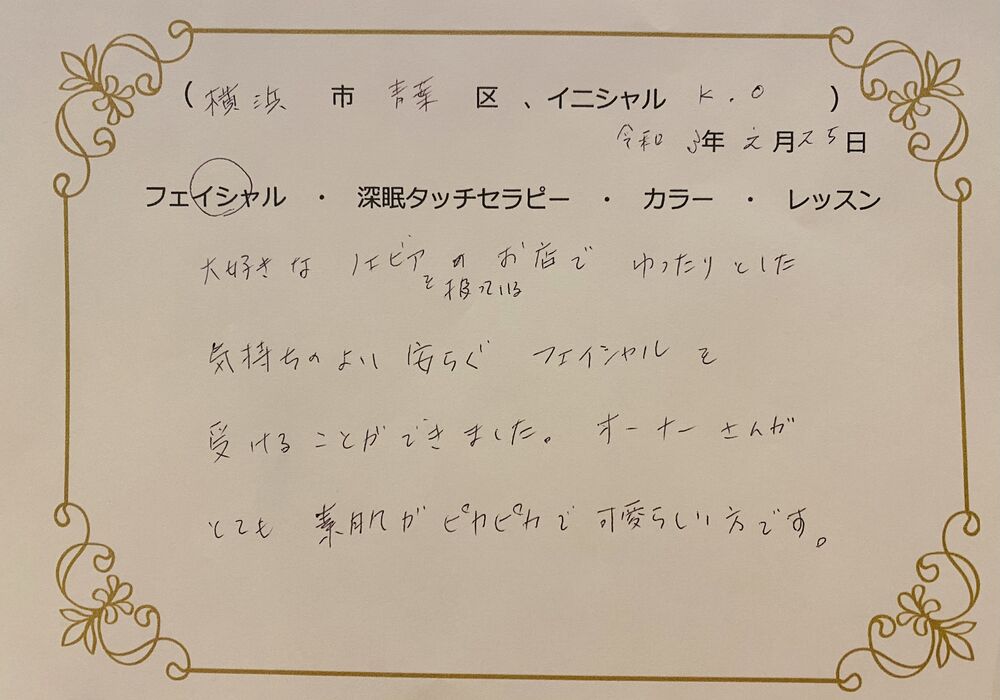 (横浜 市 青葉 区、イニシャル K.O )
令和 3年 2月25日
フェイシャル ・ 深眠タッチセラピー ・ カラー ・ レッスン
大好きな ノエビアのお店で ゆったりとした
を扱っている
気持ちのよい 安らぐ フェイシャルを
受けることができました。オーナーさんが
とても 素肌がピカピカで可愛らしい方です。